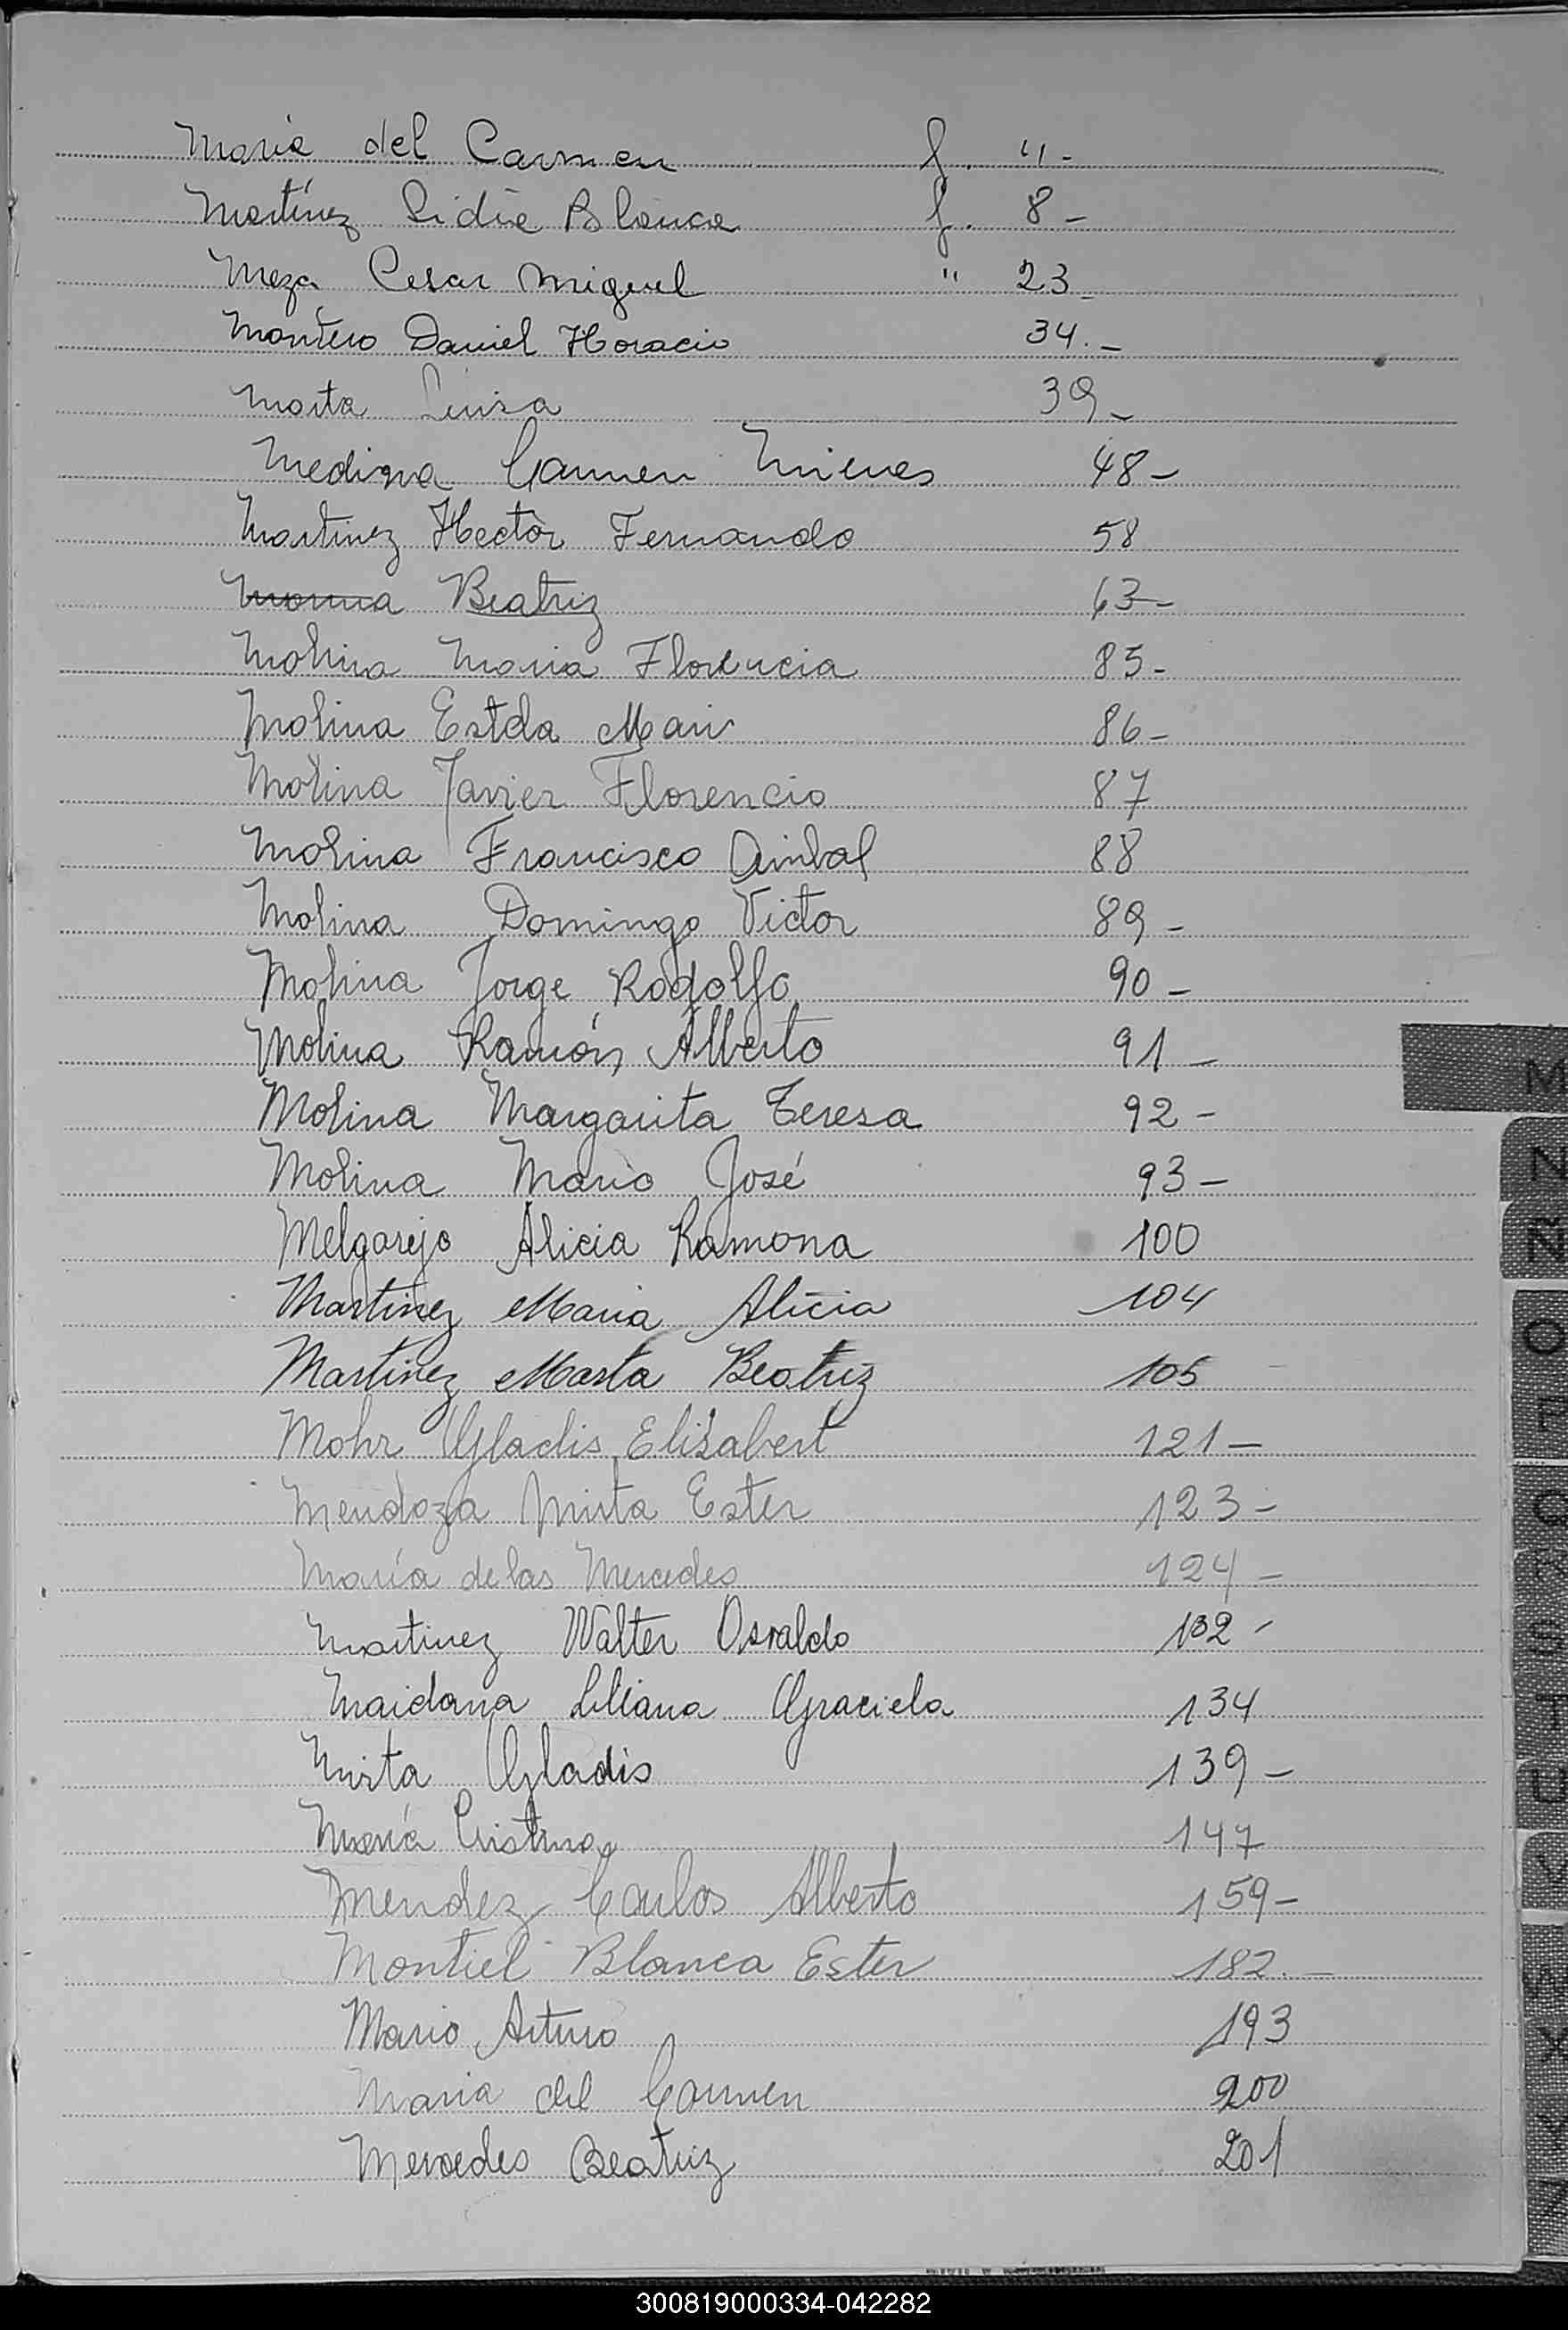 Maria del Carmen f. "-
Martínez Lidia Blanca f. 8-
Meza Cesar Miguel " 23-
Montero Daniel Horacio 34.-
Marta Luisa 39-
Medina Carmen Mieves 48-
Martinez Hector Fernando 58
Beatriz 63-
Molina Maria Florencia 85-
Molina Estda Mari 86-
Molina Javier Florencio 87
Molina Francisco Ainbal 88
Molina Domingo Victor 89-
Molina Jorge Rodolfo 90-
Molina Ramón Alberto 91-
Molina Margarita Teresa 92-
Molina Mario José 93-
Melgarejo Alicia Ramona 100
Martinez Maria Alicia 104
Martinez Marta Beatriz 105
Mohr Gladis Elisabert 121-
Mendoza Mirta Ester 123-
María de las Mercedes 124-
Martinez Walter Osvaldo 132-
Maidana Liliana Graciela 134
Mirta Gladis 139-
María Cristina 147
Mendez Carlos Alberto 159-
Montiel Blanca Ester 182.-
Mario Arturo 193
Maria del Carmen 200
Mercedes Beatriz 201
M
N
Ñ
O
P
Q
R
S
T
U
V
W
X
Y
Z
300819000334-042282